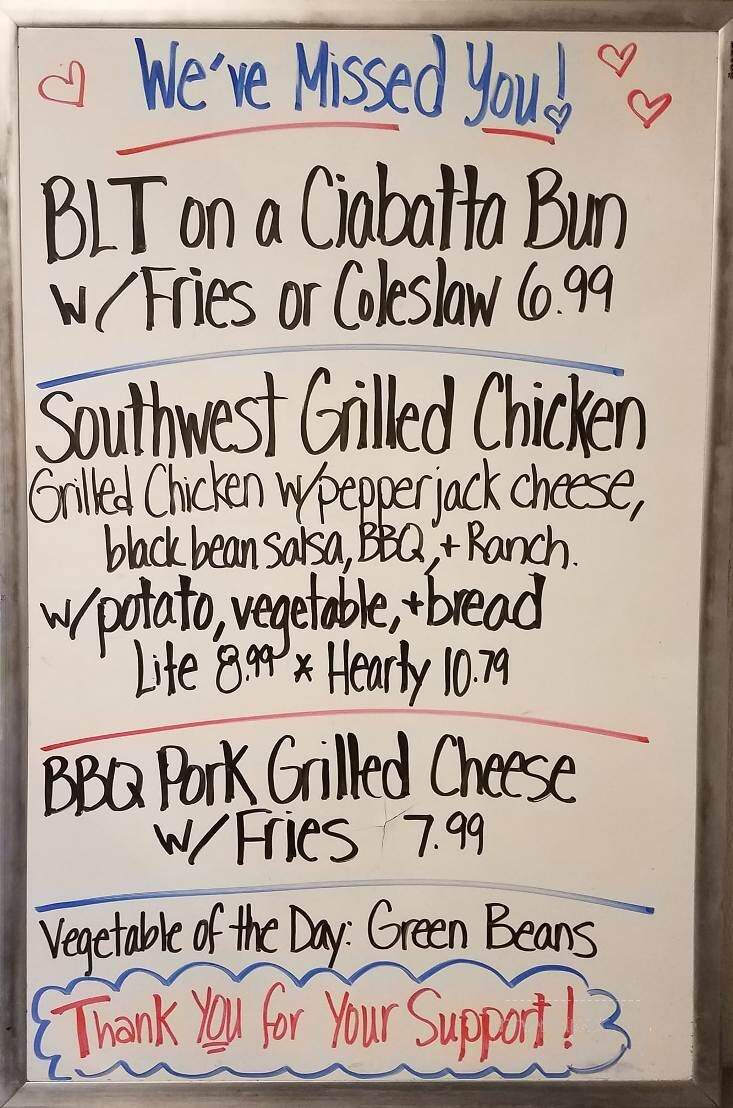 We've Missed You!
BLT on a Ciabatta Bun
w/Fries or Coleslaw 6.99
Southwest Grilled Chicken
Grilled Chicken w/pepperjack cheese,
black bean salsa, BBQ, + Ranch.
w/potato, vegetable, + bread
Lite 8.99 * Hearty 10.79
BBQ Pork Grilled Cheese
w/Fries 7.99
Vegetable of the Day: Green Beans
Thank You for Your Support!